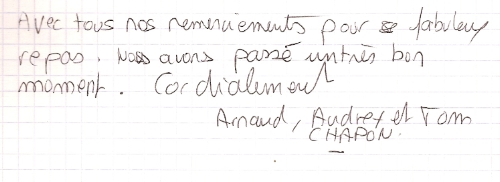 Avec tous nos remerciements pour ce fabuleux
repas. Nous avons passé un très bon
moment. Cordialement
Arnaud, Audrey et Tom
CHAPON.